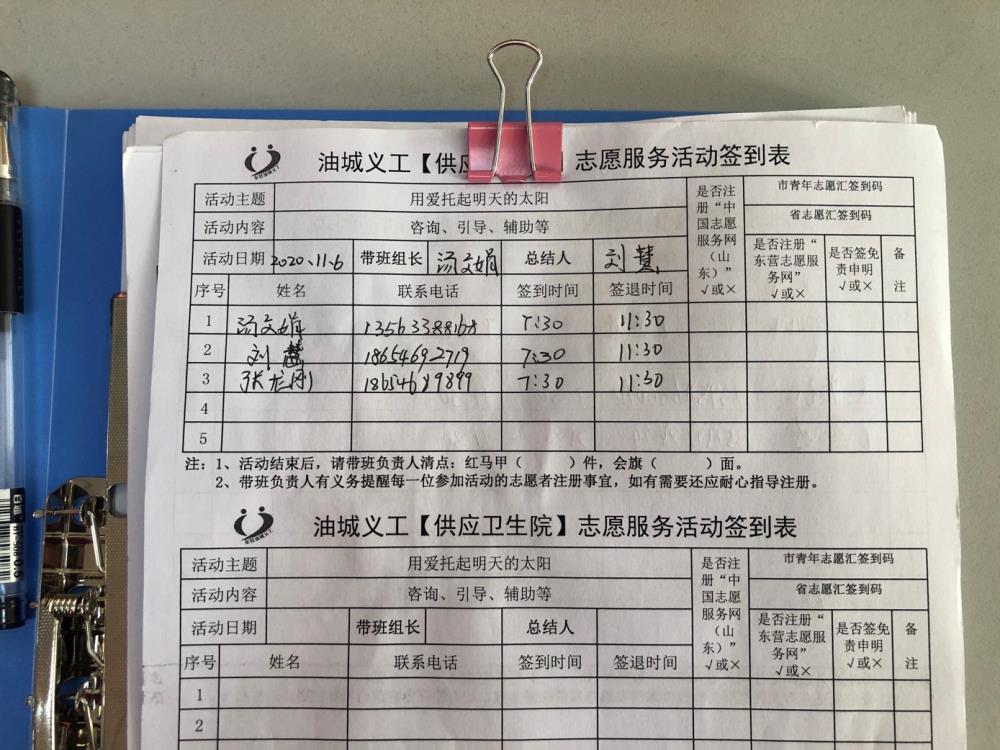 油城义工【供应 】志愿服务活动签到表
活动主题 用爱托起明天的太阳 是否注册“中国志愿服务网（山东）” √或× 市青年志愿汇签到码
活动内容 咨询、引导、辅助等 省志愿汇签到码
活动日期 2020.11.6 带班组长 汤文娟 总结人 刘慧 是否注册“东营志愿服务网” √或× 是否签免责申明 √或× 备注
序号 姓名 联系电话 签到时间 签退时间
1 汤文娟 13563388168 7:30 11:30
2 刘慧 18654692719 7:30 11:30
3 张龙刚 18654689899 7:30 11:30
4
5
注：1、活动结束后，请带班负责人清点：红马甲（ ）件，会旗（ ）面。
2、带班负责人有义务提醒每一位参加活动的志愿者注册事宜，如有需要还应耐心指导注册。
油城义工【供应卫生院】志愿服务活动签到表
活动主题 用爱托起明天的太阳 是否注册“中国志愿服务网（山东）” √或× 市青年志愿汇签到码
活动内容 咨询、引导、辅助等 省志愿汇签到码
活动日期 带班组长 总结人 是否注册“东营志愿服务网” √或× 是否签免责申明 √或× 备注
序号 姓名 联系电话 签到时间 签退时间
1
2